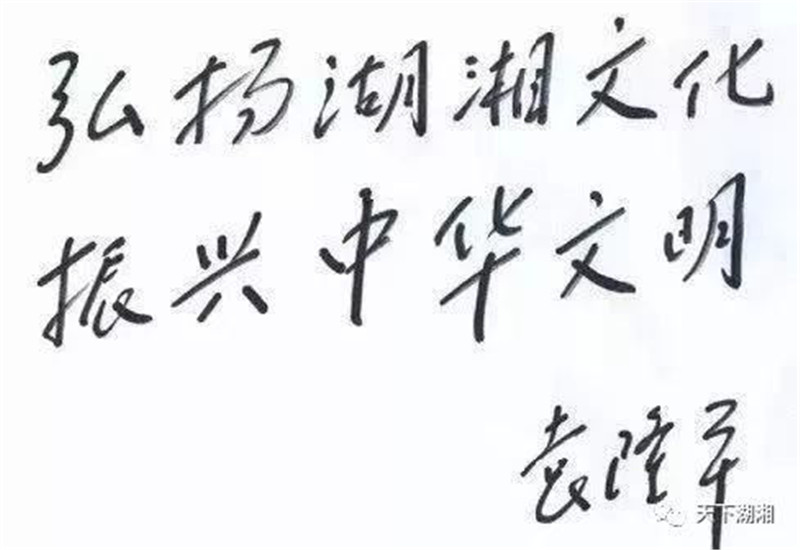 弘扬湖湘文化
振兴中华文明
袁隆平
天下湖湘